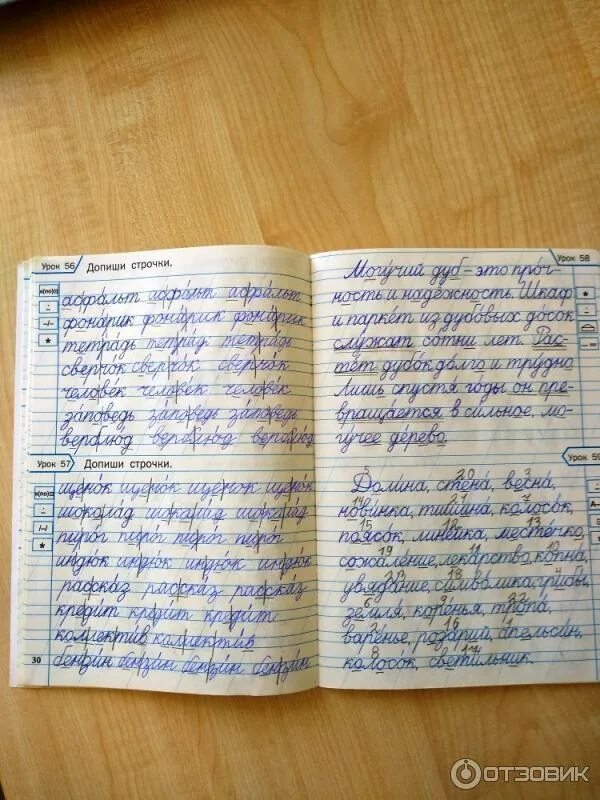 Урок 56
Допиши строчки.
асфальт асфальт асфальт
фонарик фонарик фонарик
тетрадь тетрадь тетрадь
сверчок сверчок сверчок
человек человек человек
заповедь заповедь заповедь
верблюд верблюд верблюд
Урок 57
Допиши строчки.
щенок щенок щенок щенок
шоколад шоколад шоколад
пирог пирог пирог пирог
индюк индюк индюк индюк
рассказ рассказ рассказ
кредит кредит кредит
коллектив коллектив
бензин бензин бензин бензин
30
Урок 58
Могучий дуб - это проч-
ность и надёжность. Шкаф
и паркет из дубовых досок
служат сотни лет. Рас-
тёт дубок долго и трудно
Лишь спустя годы он пре-
вращается в сильное, мо-
гучее дерево.
Урок 59
5 20 3
Долина, стена, весна,
14 21 7
новинка, тишина, колосок,
15 13
поясок, линейка, местечко,
19 11 10
сожаление, лекарство, копна,
23 18 4
увядание, символика, грибы,
6 9 22
земля, коренья, тропа,
2 16 1
варенье, розарий, апельсин,
8 17
колосок, светильник.
ОТЗОВИК